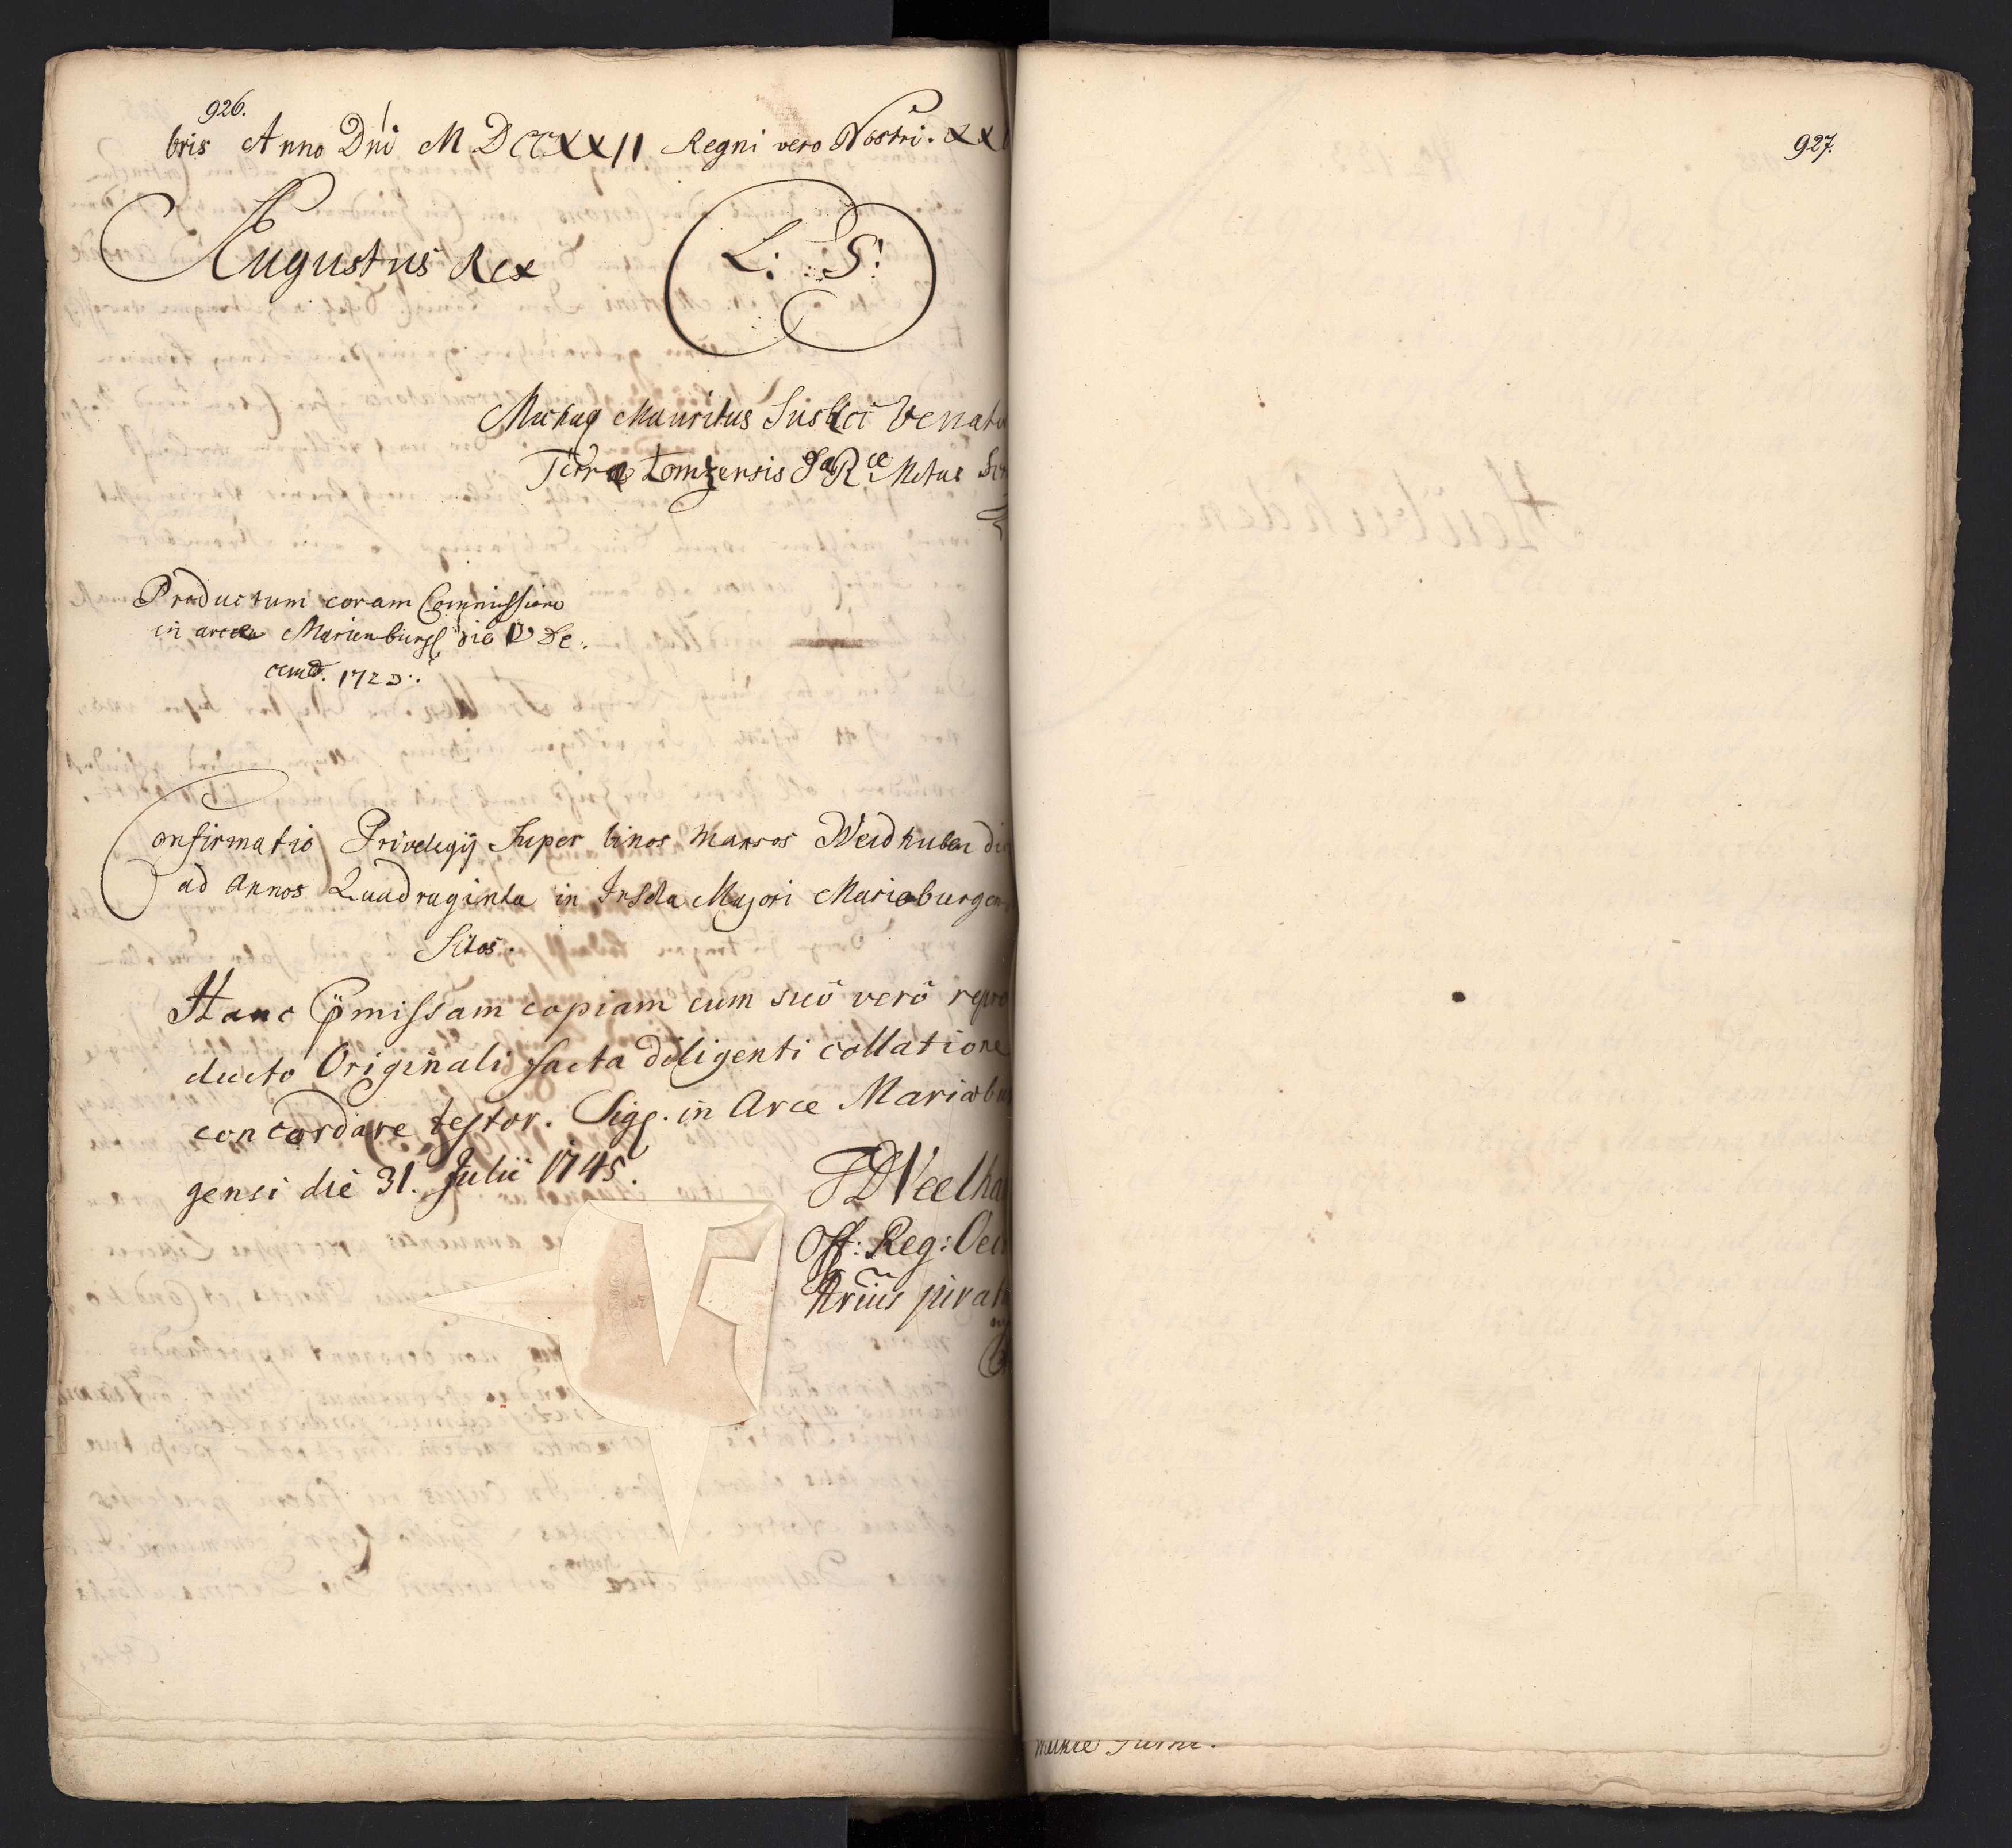 926.
bris Anno Dni MDCCXXII Regni vero Nostri. XX
Augustus Rex
L: S:
Mauritus Susķi Venat
Terræ Łomzensis S R Mtus
Productum coram Commissione
in arce Marienburg die De:
cemb. 1723.
Confirmatio Privelegij Super binos Mansos Weidhuben di
ad Annos Quadraginta in Insula Majori Marieburgen
Sitos.
Hanc Pömissam copiam cum suô verô repro
ducto Originali facta diligenti collatione
concordare testor. Sigg. in Arce Mariæbur
gensi die 31. Julii 1745.
Off: Reg: Oeco
pivat
927.